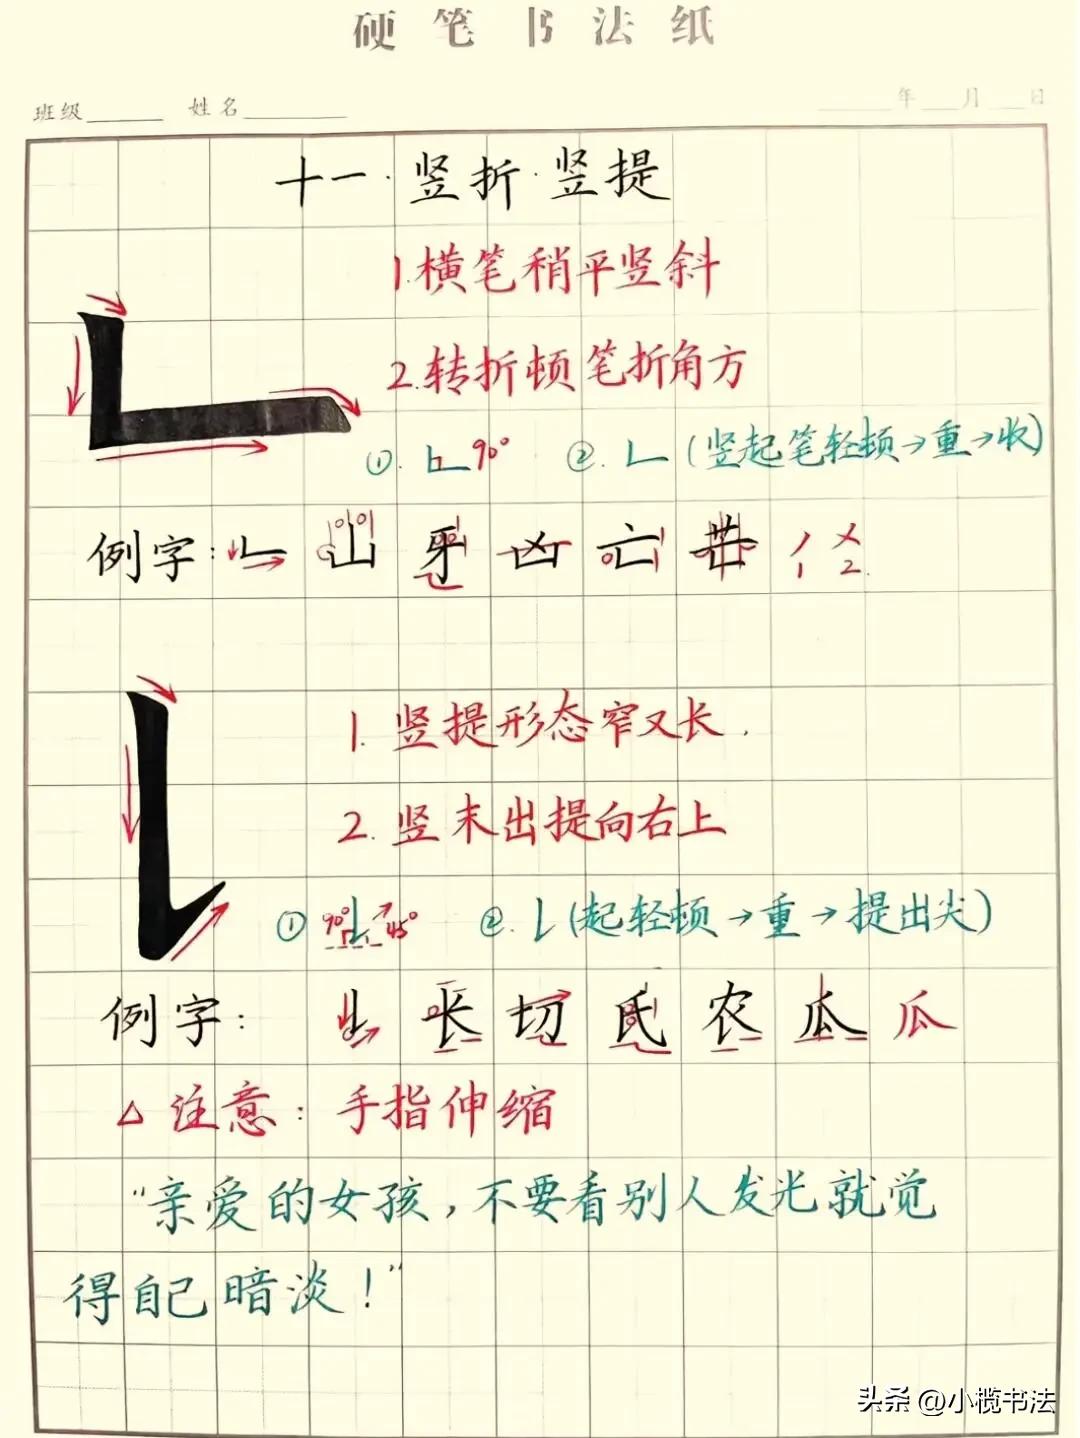 硬笔书法纸
班级 姓名 年 月 日
十一·竖折·竖提
1.横笔稍平竖斜
2.转折顿笔折角方
①. 90° ②. (竖起笔轻顿→重→收)
例字: 山 牙 凶 亡 世 1 2.
1. 竖提形态窄又长.
2. 竖末出提向右上
① 90° 45° ②. (起轻顿→重→提出尖)
例字: 长 切 氏 农 瓜 瓜
△注意: 手指伸缩
“亲爱的女孩,不要看别人发光就觉
得自己暗淡!”
头条 @小榄书法